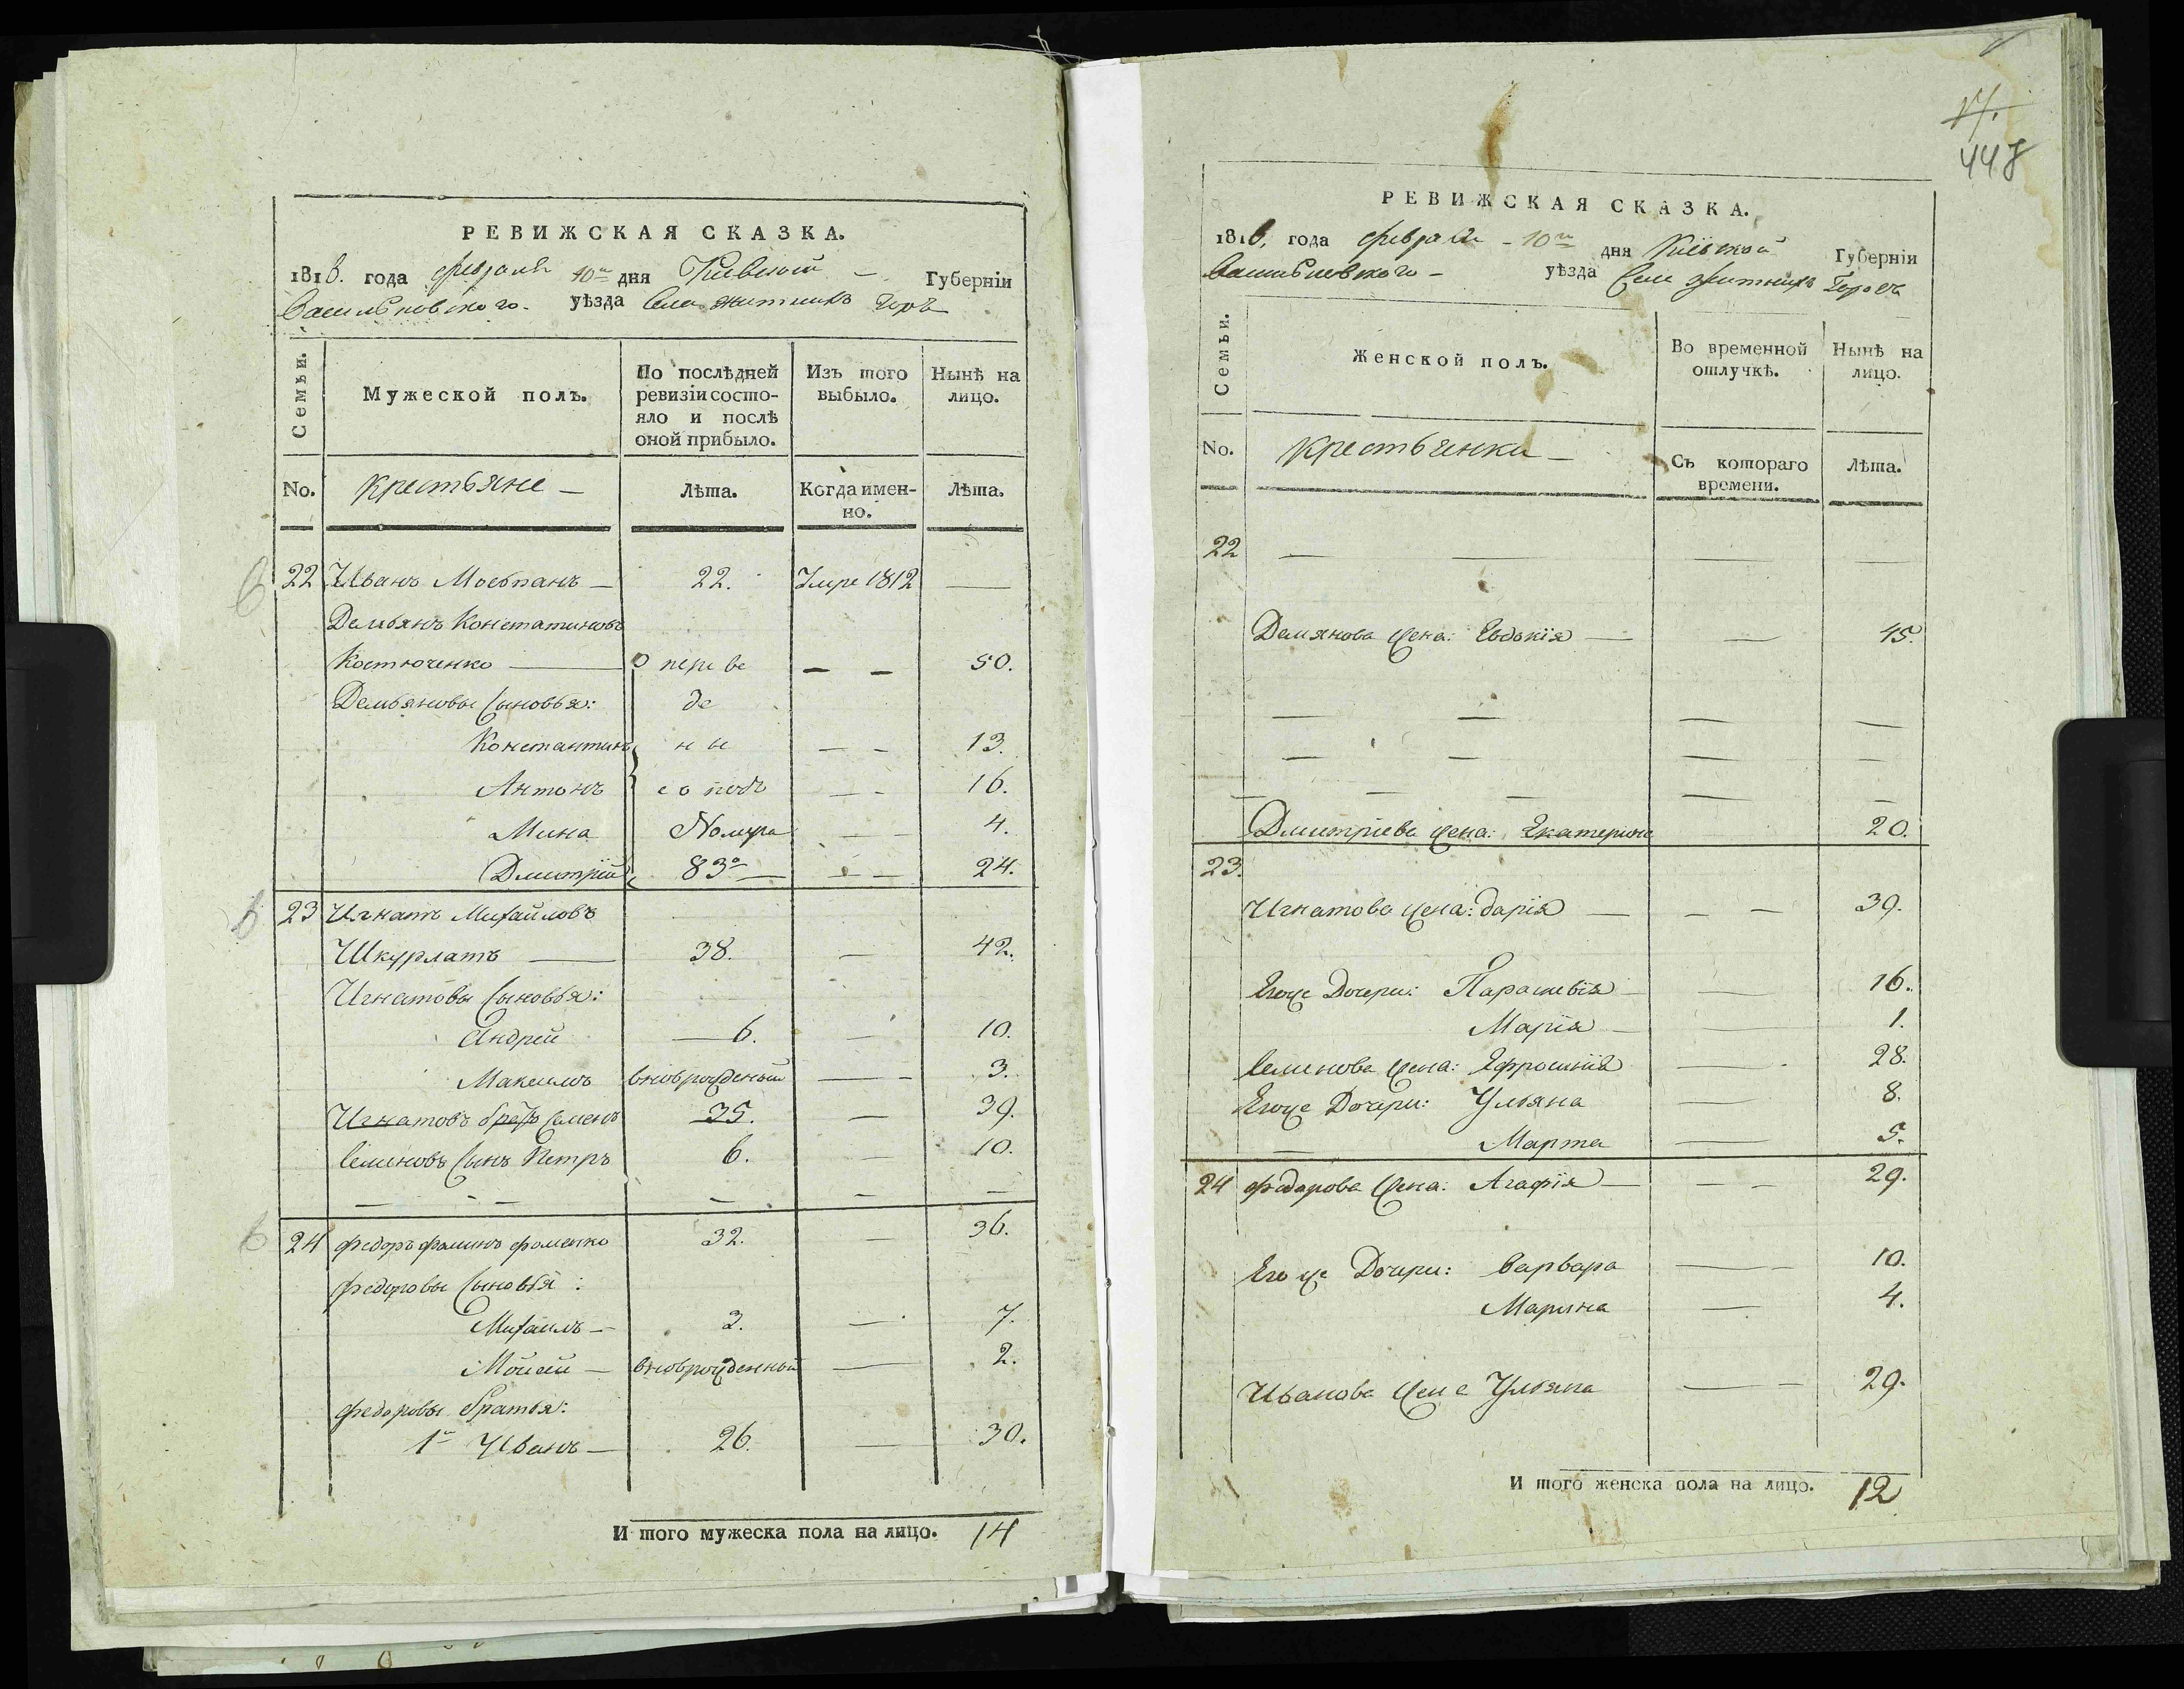 РЕВИЖСКАЯ СКАЗКА.
1816. года февраля 10го дня Киевской Губернїи
Васильковского уѣзда Села Житнихъ Горъ
Семьи. Мужеской полъ. По послѣдней ревизїи состо-яло и послѣ оной прибыло. Изъ того выбыло. Нынѣ на лицо.
No. Крестьяне Лѣта. Когда имен-но. Лѣта.
22 Иванъ Мосбпанъ — 22. Умре 1812 —
Демьянъ Констатиновъ
Костюченко — о пере ве — — 50.
Демьяновы Сыновья: де
Константинъ н ы — — 13.
Антонъ с о подъ — — 16.
Мина Номера — — 4.
Дмитрїй 83о — — — 24.
23 Игнатъ Михайловъ
Шкурлатъ — 38. — 42.
Игнатовы Сыновья:
Андрей — 6. — 10.
Максимъ вновьрожденый — — 3.
Игнатовъ братъ Семенъ 35. — 39.
Семеновъ Сынъ Петръ 6. — 10.
— — — — — —
24 Федоръ Фоминъ Фоменко 32. — 36.
Федоровы Сыновья:
Михаилъ — 3. — 7.
Мойсей — вновьрожденный — 2.
Федоровы братья:
1й Иванъ — 26. — 30.
И того мужеска пола на лицо. 14
17.
448
РЕВИЖСКАЯ СКАЗКА.
1816. года февраля - 10го дня Кїевской Губернїи
Васильковского - уѣзда Села Житнихъ Горовъ
Семьи. Женской полъ. Во временной отлучкѣ. Нынѣ на лицо.
No. Крестьянки — Съ котораго времени. Лѣта.
22 — — — —
Демянова жена: Евдокїя — — 45.
— — — —
— — — —
— — — — —
Дмитрїева жена: Екатерина 20.
23.
Игнатова жена: дарїя — — — 39.
Егоже Дочери: Параскевїя — — 16.
Марїя — — 1.
Семенова жена: Ефросинїя — 28.
Егоже Дочери: Ульяна — 8.
— Марта — 5.
24 Федорова жена: Агафїя — — — 29.
Егоже Дочери: Варвара — — 10.
Марина — 4.
Иванова жена Ульяна — — 29.
И того женска пола на лицо. 12